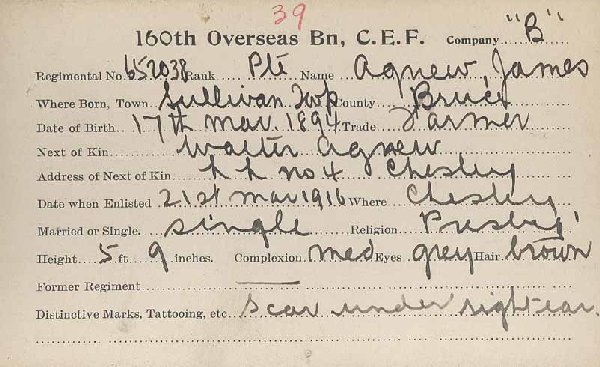 39
160th Overseas Bn, C.E.F. Company "B"
Regimental No. 652038 Rank Pte Name Agnew, James
Where Born, Town Sullivan Twp County Bruce
Date of Birth 17th Mar. 1894 Trade Farmer
Next of Kin Walter Agnew
Address of Next of Kin R R no 4 Chesley
Date when Enlisted 21st Mar 1916 Where Chesley
Married or Single. single Religion Presby'
Height 5 ft 9 inches. Complexion med Eyes grey Hair brown
Former Regiment
Distinctive Marks, Tattooing, etc. Scar under right ear.